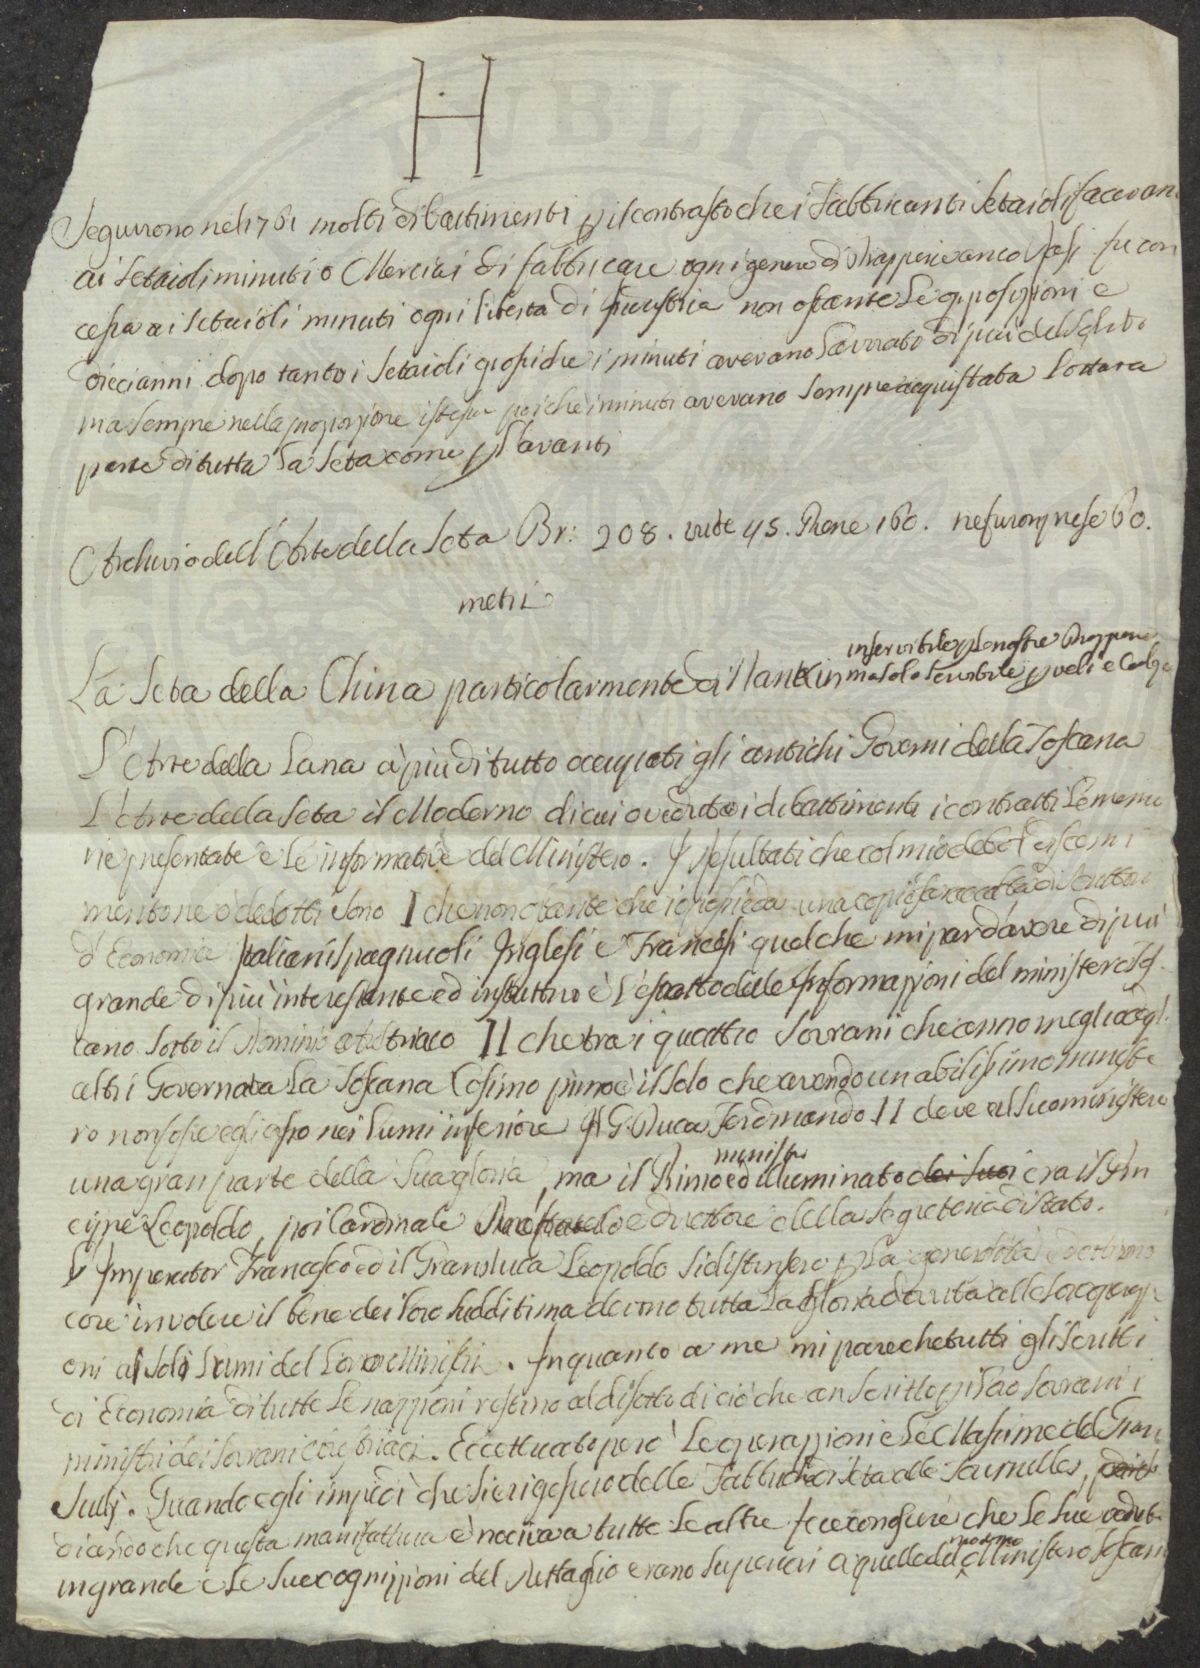 H
Seguirono nel 1761 molti dibattimenti p il contrasto che i Fabbricanti Setaioli facevan
ai Setaioli minuti o Merciai di fabbricare ogni genere di Drapperie anco fu con
cessa ai Setaioli minuti ogni libertà di Industria non ostante le opposizzioni e
dieci anni dopo tanto i Setaioli grossi che i minuti avevano lavorato di più del solito
ma sempre nella proporzione istessa poiche i minuti avevano sempre acquistata l'ottava
parte di tutta la Seta come p l'avanti
Archivio dell'Arte della Seta Br: 208. 45. 160. ne furon prese 60.
metri
inservibile p le nostre Drapperie
La Seta della China particolarmente di Nankin ma solo servibile p veli e
L'Arte della Lana à più di tutto occupati gli antichi Governi della Toscana
L'Arte della Seta il Moderno di cui ò veduto i dibattimenti i contratti le memo
rie presentate e le informative del Ministero. I resultati che col mio debol discerni
mento ne ò dedotti sono I che non ostante che io possieda una copiosa raccolta di Scrittori
d'Economia Italiani Spagnuoli Inglesi e Francesi quel che mi par d'avere di più
grande di più interessante ed instruttivo è l'estratto delle Informazzioni del ministero To
cano sotto il Dominio Austriaco II che tra i quattro Sovrani che anno meglio degl
altri Governata la Toscana Cosimo primo è il solo che avendo un abilissimo ministe
ro non fosse egli nei lumi inferiore Il G. Duca Ferdinando II deve al suo ministero
una gran parte della sua gloria, ma il Primo ed illuminato ministro dei suoi era il Prin
cipe Leopoldo, poi Cardinale e direttore della Segreteria di Stato.
L'Imperator Francesco ed il Granduca Leopoldo si distinsero p la generosità ed ottimo
core in volere il bene dei loro sudditi ma devono tutta la gloria dovuta alle loro operazzi
oni ai soli Lumi del loro Ministri. In quanto a me mi pare che tutti gli scritti
di Economia di tutte le nazzioni restino al disotto di ciò che an scritto i Sovrani i
ministri dei Sovrani Austriaci. Eccettuato però le operazzioni e le Massime del Gran
Sulj. Quando egli impedì che si erigessero delle Fabbriche di Seta alle Tournelles,
diando che questa manifattura è nociva a tutte le altre fece conoscere che le sue vedute
in grande e le sue cognizzioni del dettaglio erano superiori a quelle del moderno Ministero Toscano